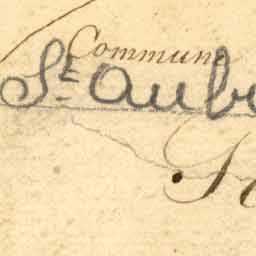 Commune
St. Aub